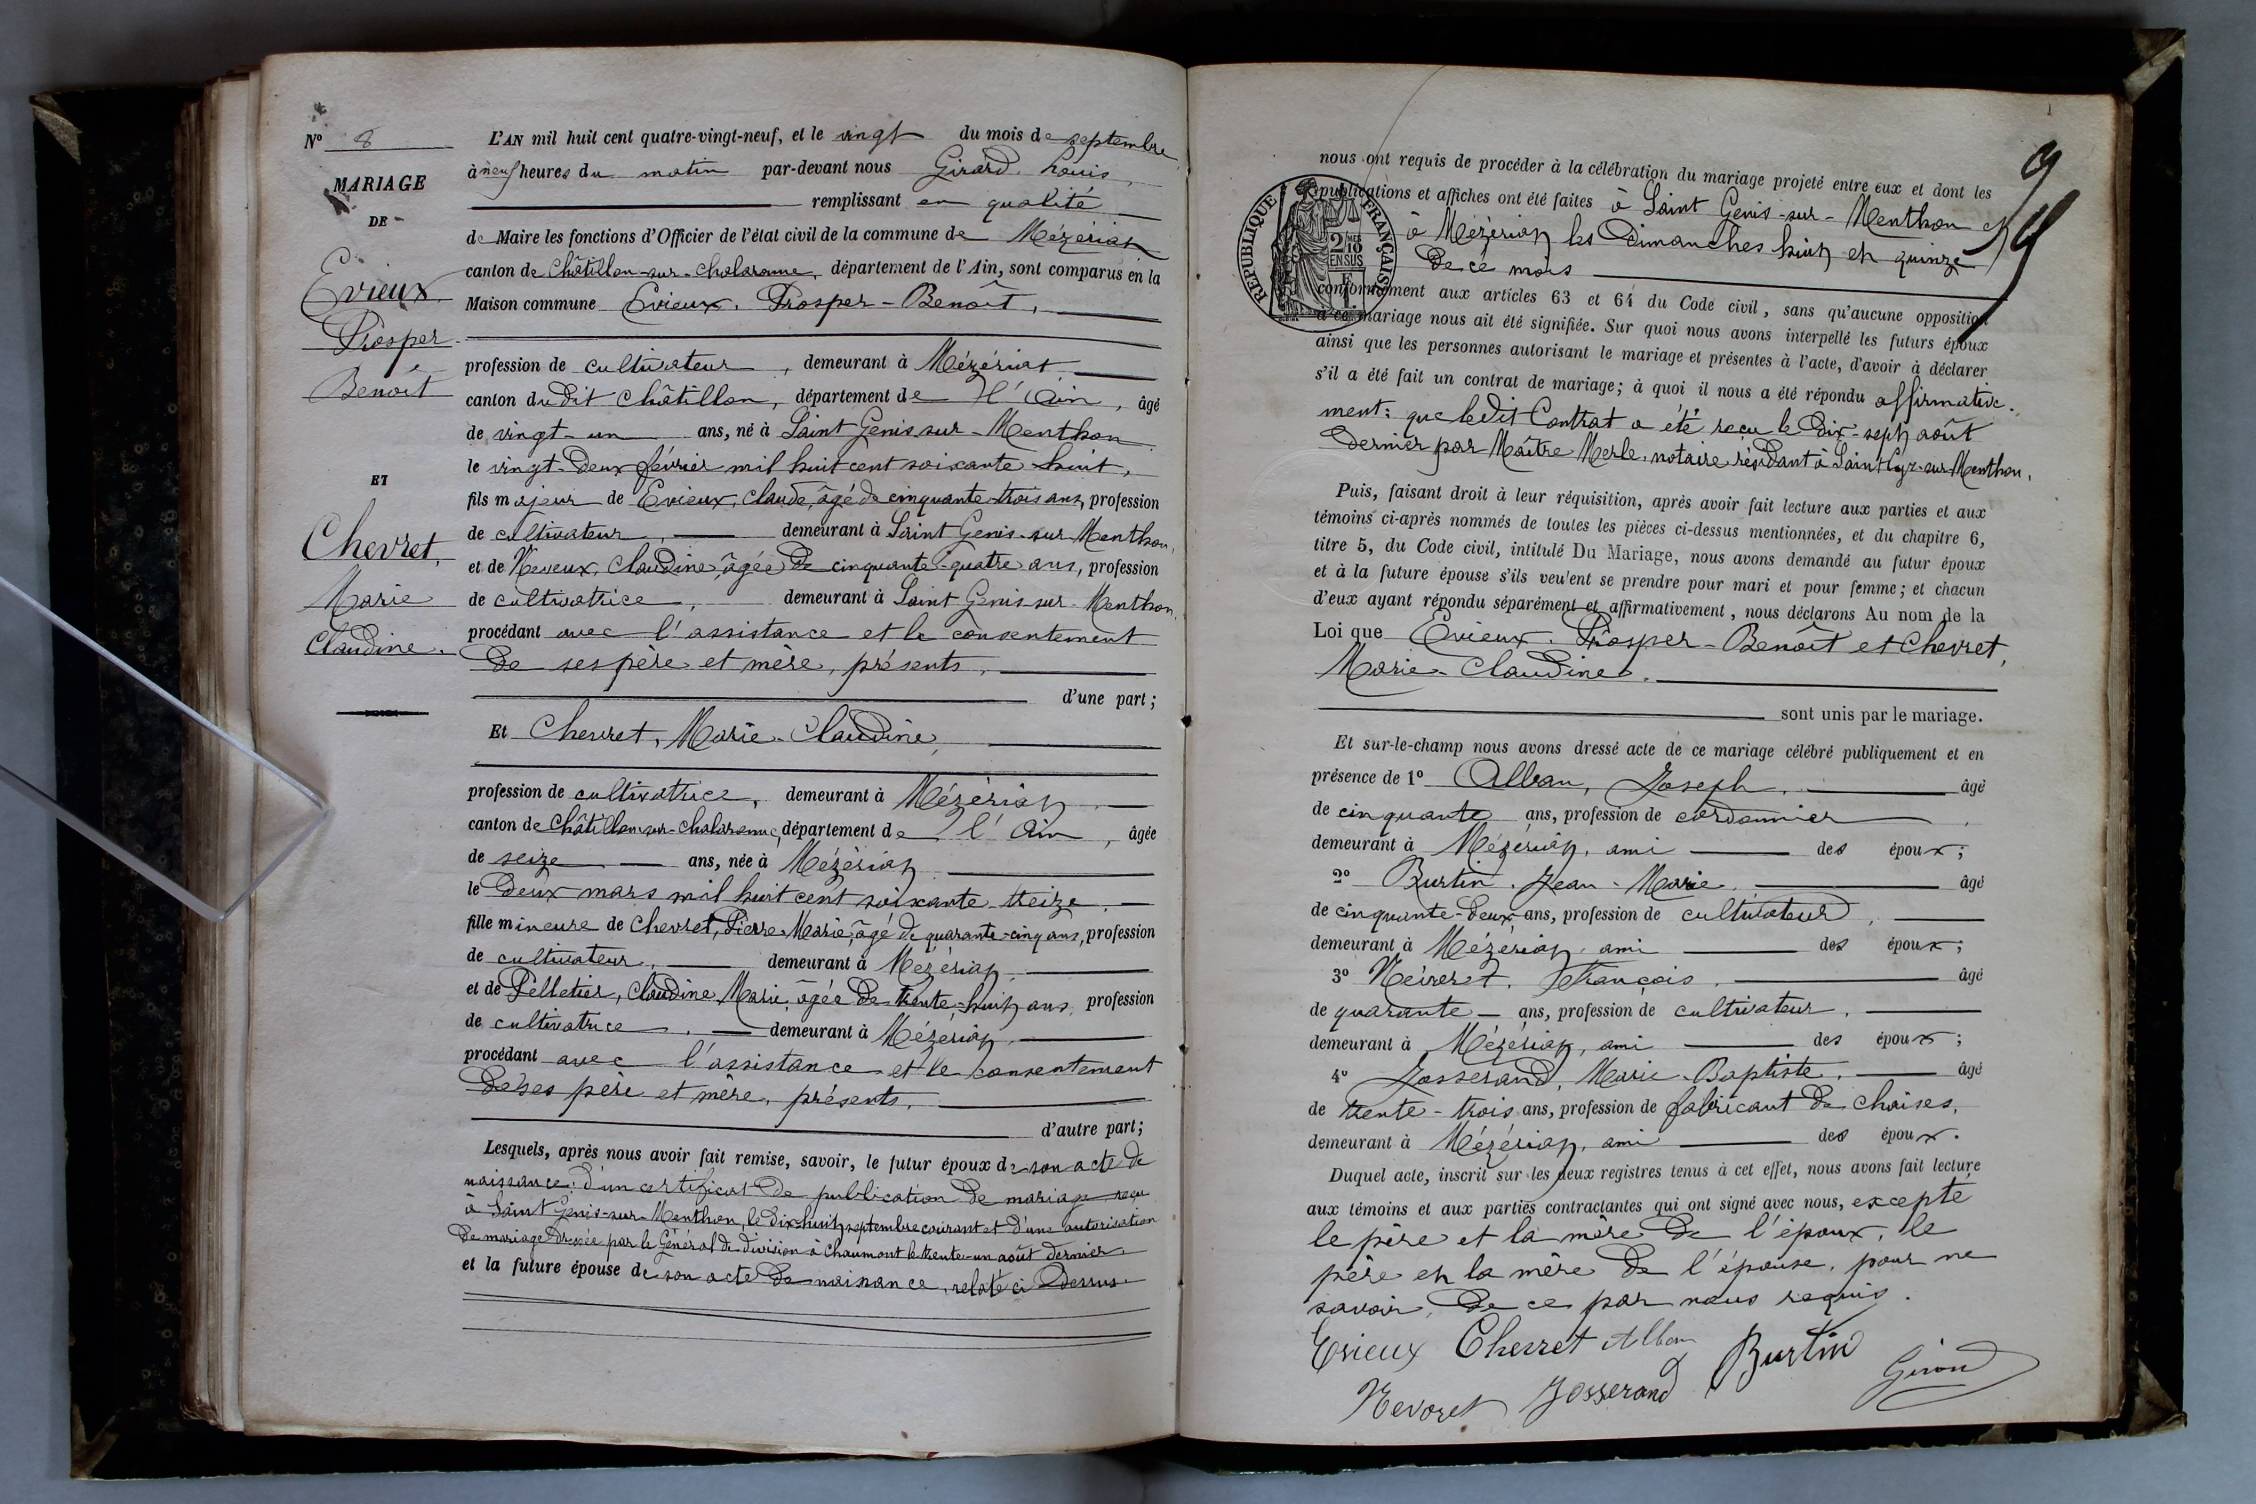 N° 8
MARIAGE
DE
Evieux
Prosper
Benoît
ET
Chevret,
Marie
Claudine.
L'AN mil huit cent quatre-vingt-neuf, et le vingt du mois de septembre
à neuf heures du matin par-devant nous Girard Louis,
remplissant en qualité
de Maire les fonctions d'Officier de l'état civil de la commune de Mézériat
canton de Châtillon-sur-Chalaronne, département de l'Ain, sont comparus en la
Maison commune Evieux, Prosper-Benoît,
profession de cultivateur, demeurant à Mézériat
canton dudit Châtillon, département de l'Ain, âgé
de vingt-un ans, né à Saint Genis sur-Menthon
le vingt-deux février mil huit cent soixante-huit,
fils majeur de Evieux, Claude, âgé de cinquante-trois ans, profession
de cultivateur, demeurant à Saint Genis-sur-Menthon,
et de Neveux, Claudine, âgée de cinquante-quatre ans, profession
de cultivatrice, demeurant à Saint Genis-sur-Menthon,
procédant avec l'assistance et le consentement
de ses père et mère, présents,
d'une part;
Et Chevret, Marie-Claudine,
profession de cultivatrice, demeurant à Mézériat,
canton de Châtillon-sur-Chalaronne, département de l'Ain, âgée
de seize ans, née à Mézériat
le deux mars mil huit cent soixante-treize,
fille mineure de Chevret, Pierre-Marie, âgé de quarante-cinq ans, profession
de cultivateur, demeurant à Mézériat,
et de Pelletier, Claudine Marie, âgée de trente-huit ans, profession
de cultivatrice, demeurant à Mézériat,
procédant avec l'assistance et le consentement
de ses père et mère, présents,
d'autre part;
Lesquels, après nous avoir fait remise, savoir, le futur époux de son acte de
naissance, d'un certificat de publication de mariage reçu
à Saint Genis-sur-Menthon, le dix-huit septembre courant et d'une autorisation
de mariage dressée par le Général de division à Chaumont le trente-un août dernier,
et la future épouse de son acte de naissance, relaté ci-dessus
nous ont requis de procéder à la célébration du mariage projeté entre eux et dont les
publications et affiches ont été faites à Saint Genis-sur-Menthon et
à Mézériat les dimanches huit et quinze
de ce mois
conformément aux articles 63 et 64 du Code civil, sans qu'aucune opposition
à ce mariage nous ait été signifiée. Sur quoi nous avons interpellé les futurs époux
ainsi que les personnes autorisant le mariage et présentes à l'acte, d'avoir à déclarer
s'il a été fait un contrat de mariage; à quoi il nous a été répondu affirmative-
ment: que ledit Contrat a été reçu le dix-sept août
dernier par Maître Merle, notaire résidant à Saint Cyr-sur-Menthon.
Puis, faisant droit à leur réquisition, après avoir fait lecture aux parties et aux
témoins ci-après nommés de toutes les pièces ci-dessus mentionnées, et du chapitre 6,
titre 5, du Code civil, intitulé Du Mariage, nous avons demandé au futur époux
et à la future épouse s'ils veulent se prendre pour mari et pour femme; et chacun
d'eux ayant répondu séparément et affirmativement, nous déclarons Au nom de la
Loi que Evieux, Prosper-Benoît et Chevret,
Marie-Claudine,
sont unis par le mariage.
Et sur-le-champ nous avons dressé acte de ce mariage célébré publiquement et en
présence de 1° Alban, Joseph, âgé
de cinquante ans, profession de cordonnier,
demeurant à Mézériat, ami des époux;
2° Burtin, Jean-Marie, âgé
de cinquante-deux ans, profession de cultivateur,
demeurant à Mézériat, ami des époux;
3° Neivoret, François, âgé
de quarante ans, profession de cultivateur,
demeurant à Mézériat, ami des époux;
4° Josserand, Marie-Baptiste, âgé
de trente-trois ans, profession de fabricant de chaises,
demeurant à Mézériat, ami des époux.
Duquel acte, inscrit sur les deux registres tenus à cet effet, nous avons fait lecture
aux témoins et aux parties contractantes qui ont signé avec nous, excepté
le père et la mère de l'époux, le
père et la mère de l'épouse, pour ne
savoir, de ce par nous requis.
Evieux Chevret Alban Burtin
Nevoret Josserand Girard
RÉPUBLIQUE FRANÇAISE
2 10mes
EN SUS